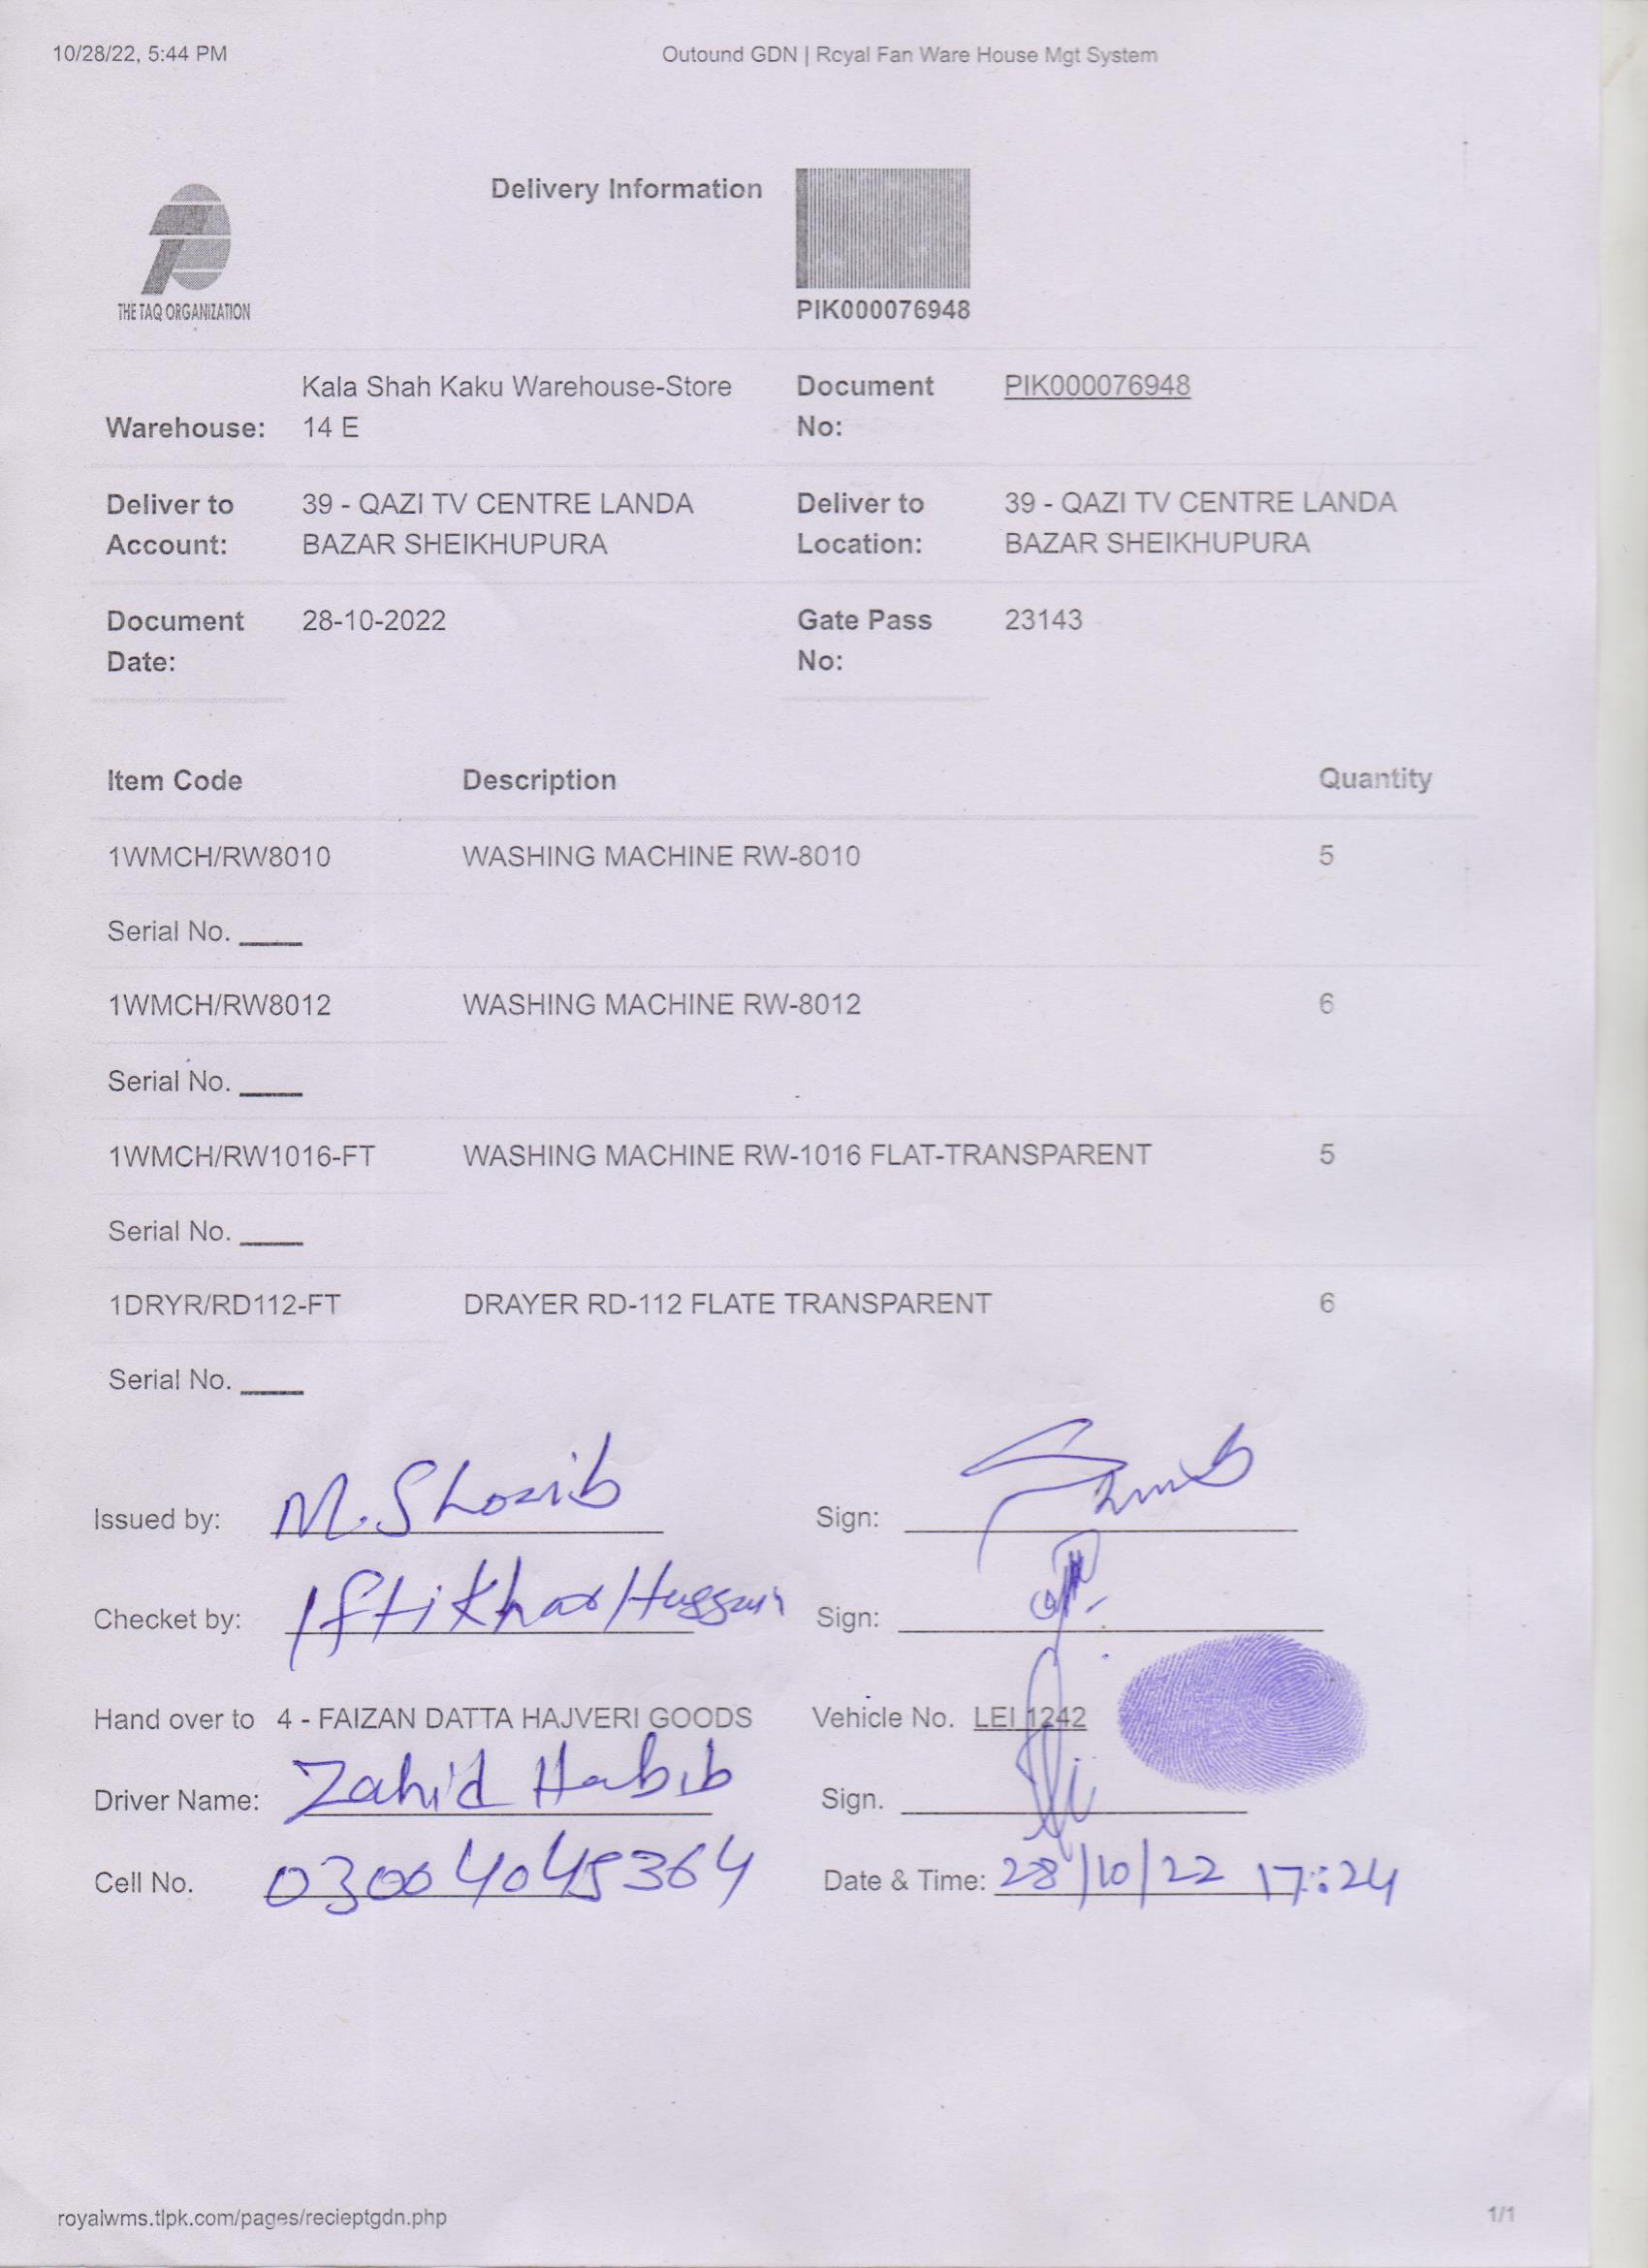 10/28/22, 5:44 PM Outound GDN | Royal Fan Ware House Mgt System
Delivery Information
THE TAQ ORGANIZATION
PIK000076948
Kala Shah Kaku Warehouse-Store Document PIK000076948
Warehouse: 14 E No:
Deliver to 39 - QAZI TV CENTRE LANDA Deliver to 39 - QAZI TV CENTRE LANDA
Account: BAZAR SHEIKHUPURA Location: BAZAR SHEIKHUPURA
Document 28-10-2022 Gate Pass 23143
Date: No:
Item Code Description Quantity
1WMCH/RW8010 WASHING MACHINE RW-8010 5
Serial No. ____
1WMCH/RW8012 WASHING MACHINE RW-8012 6
Serial No. ____
1WMCH/RW1016-FT WASHING MACHINE RW-1016 FLAT-TRANSPARENT 5
Serial No. ____
1DRYR/RD112-FT DRAYER RD-112 FLATE TRANSPARENT 6
Serial No. ____
Issued by: M. Shozib Sign:
Checket by: Iftikhar Hussain Sign:
Hand over to 4 - FAIZAN DATTA HAJVERI GOODS Vehicle No. LEI 1242
Driver Name: Zahid Habib Sign.
Cell No. 03004045364 Date & Time: 28/10/22 17:24
royalwms.tlpk.com/pages/recieptgdn.php 1/1